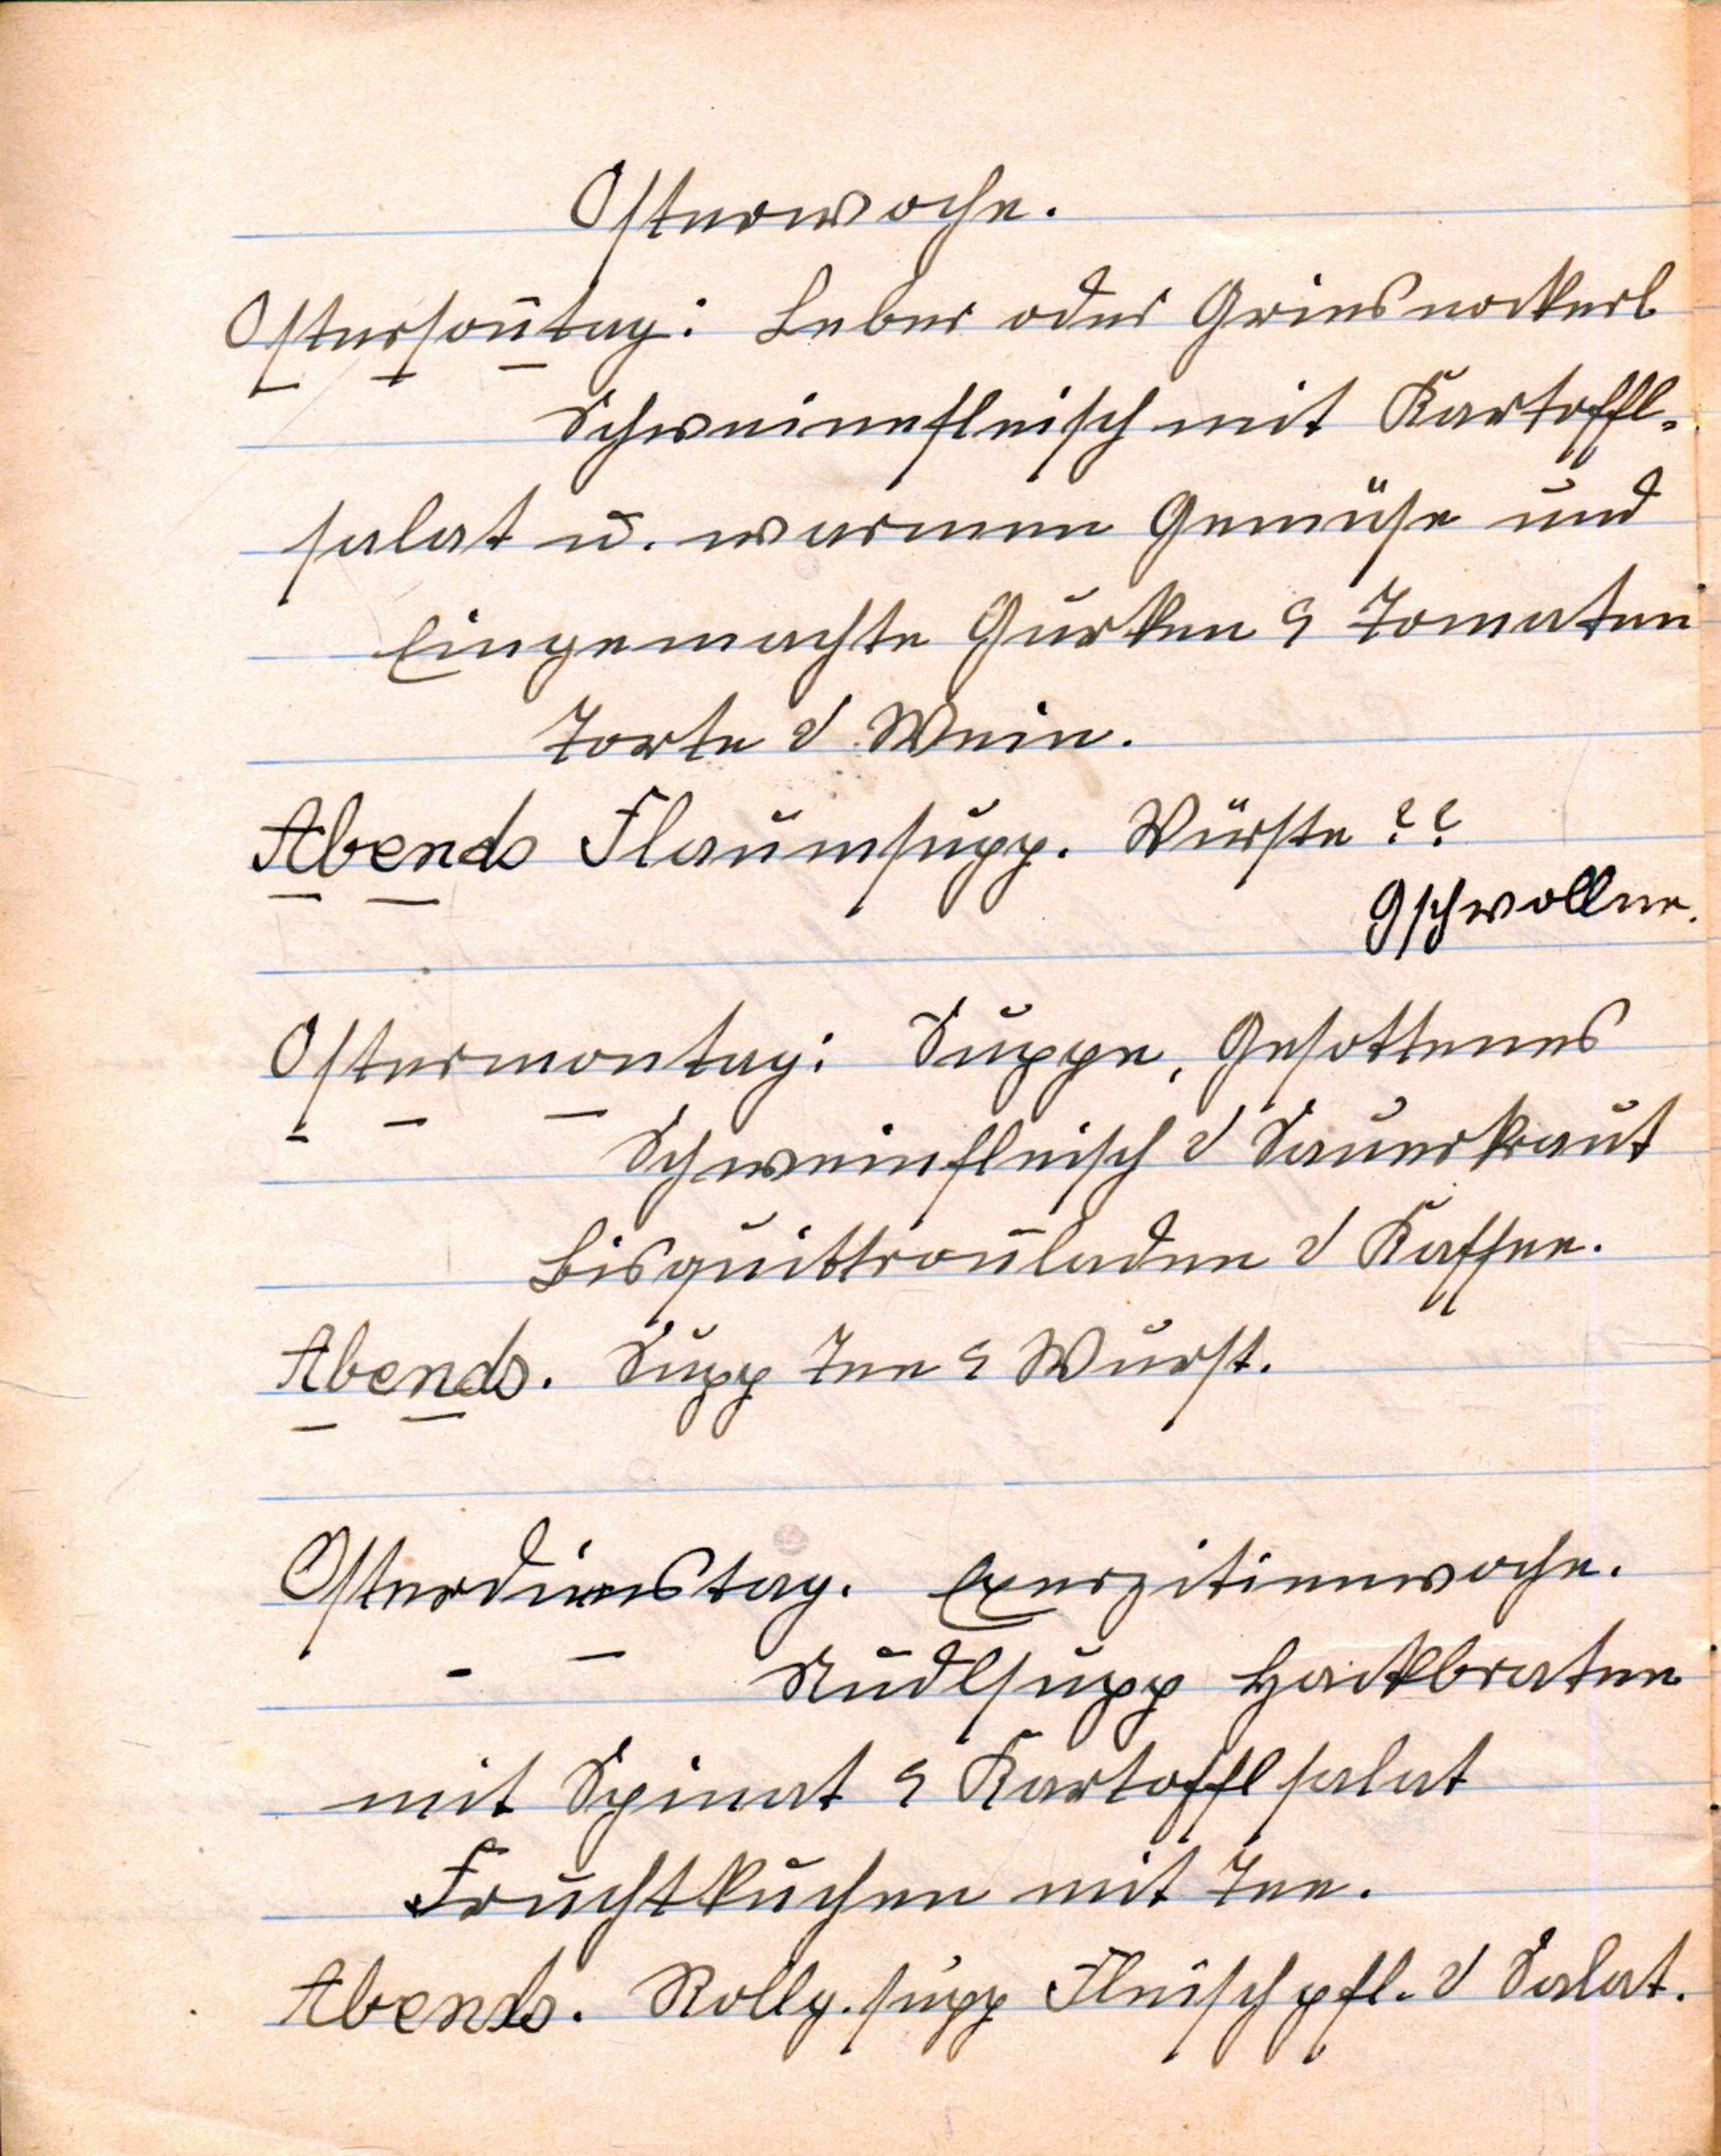 Osterwoche.
Ostersoñtag: Leber oder Griesnockerl
Schweinefleisch mit Kartoffl-
salat u. warmen Gemüse und
Eingemachte Gurken & Tomaten
Torte & Wein.
Abends Flaumsupp. Würste ??
Gschwollne.
Ostermontag: Suppe, Gesottenes
Schweinfleisch & Sauerkraut
Bisquittrouladen & Kaffee.
Abends. Supp Tee & Wurst.
Osterdienstag. Exerzitienwoche.
Nudlsupp Hackbraten
mit Spinat & Kartofflsalat
Fruchtkuchen mit Tee.
Abends. Rollg.supp Fleischpfl. & Salat.